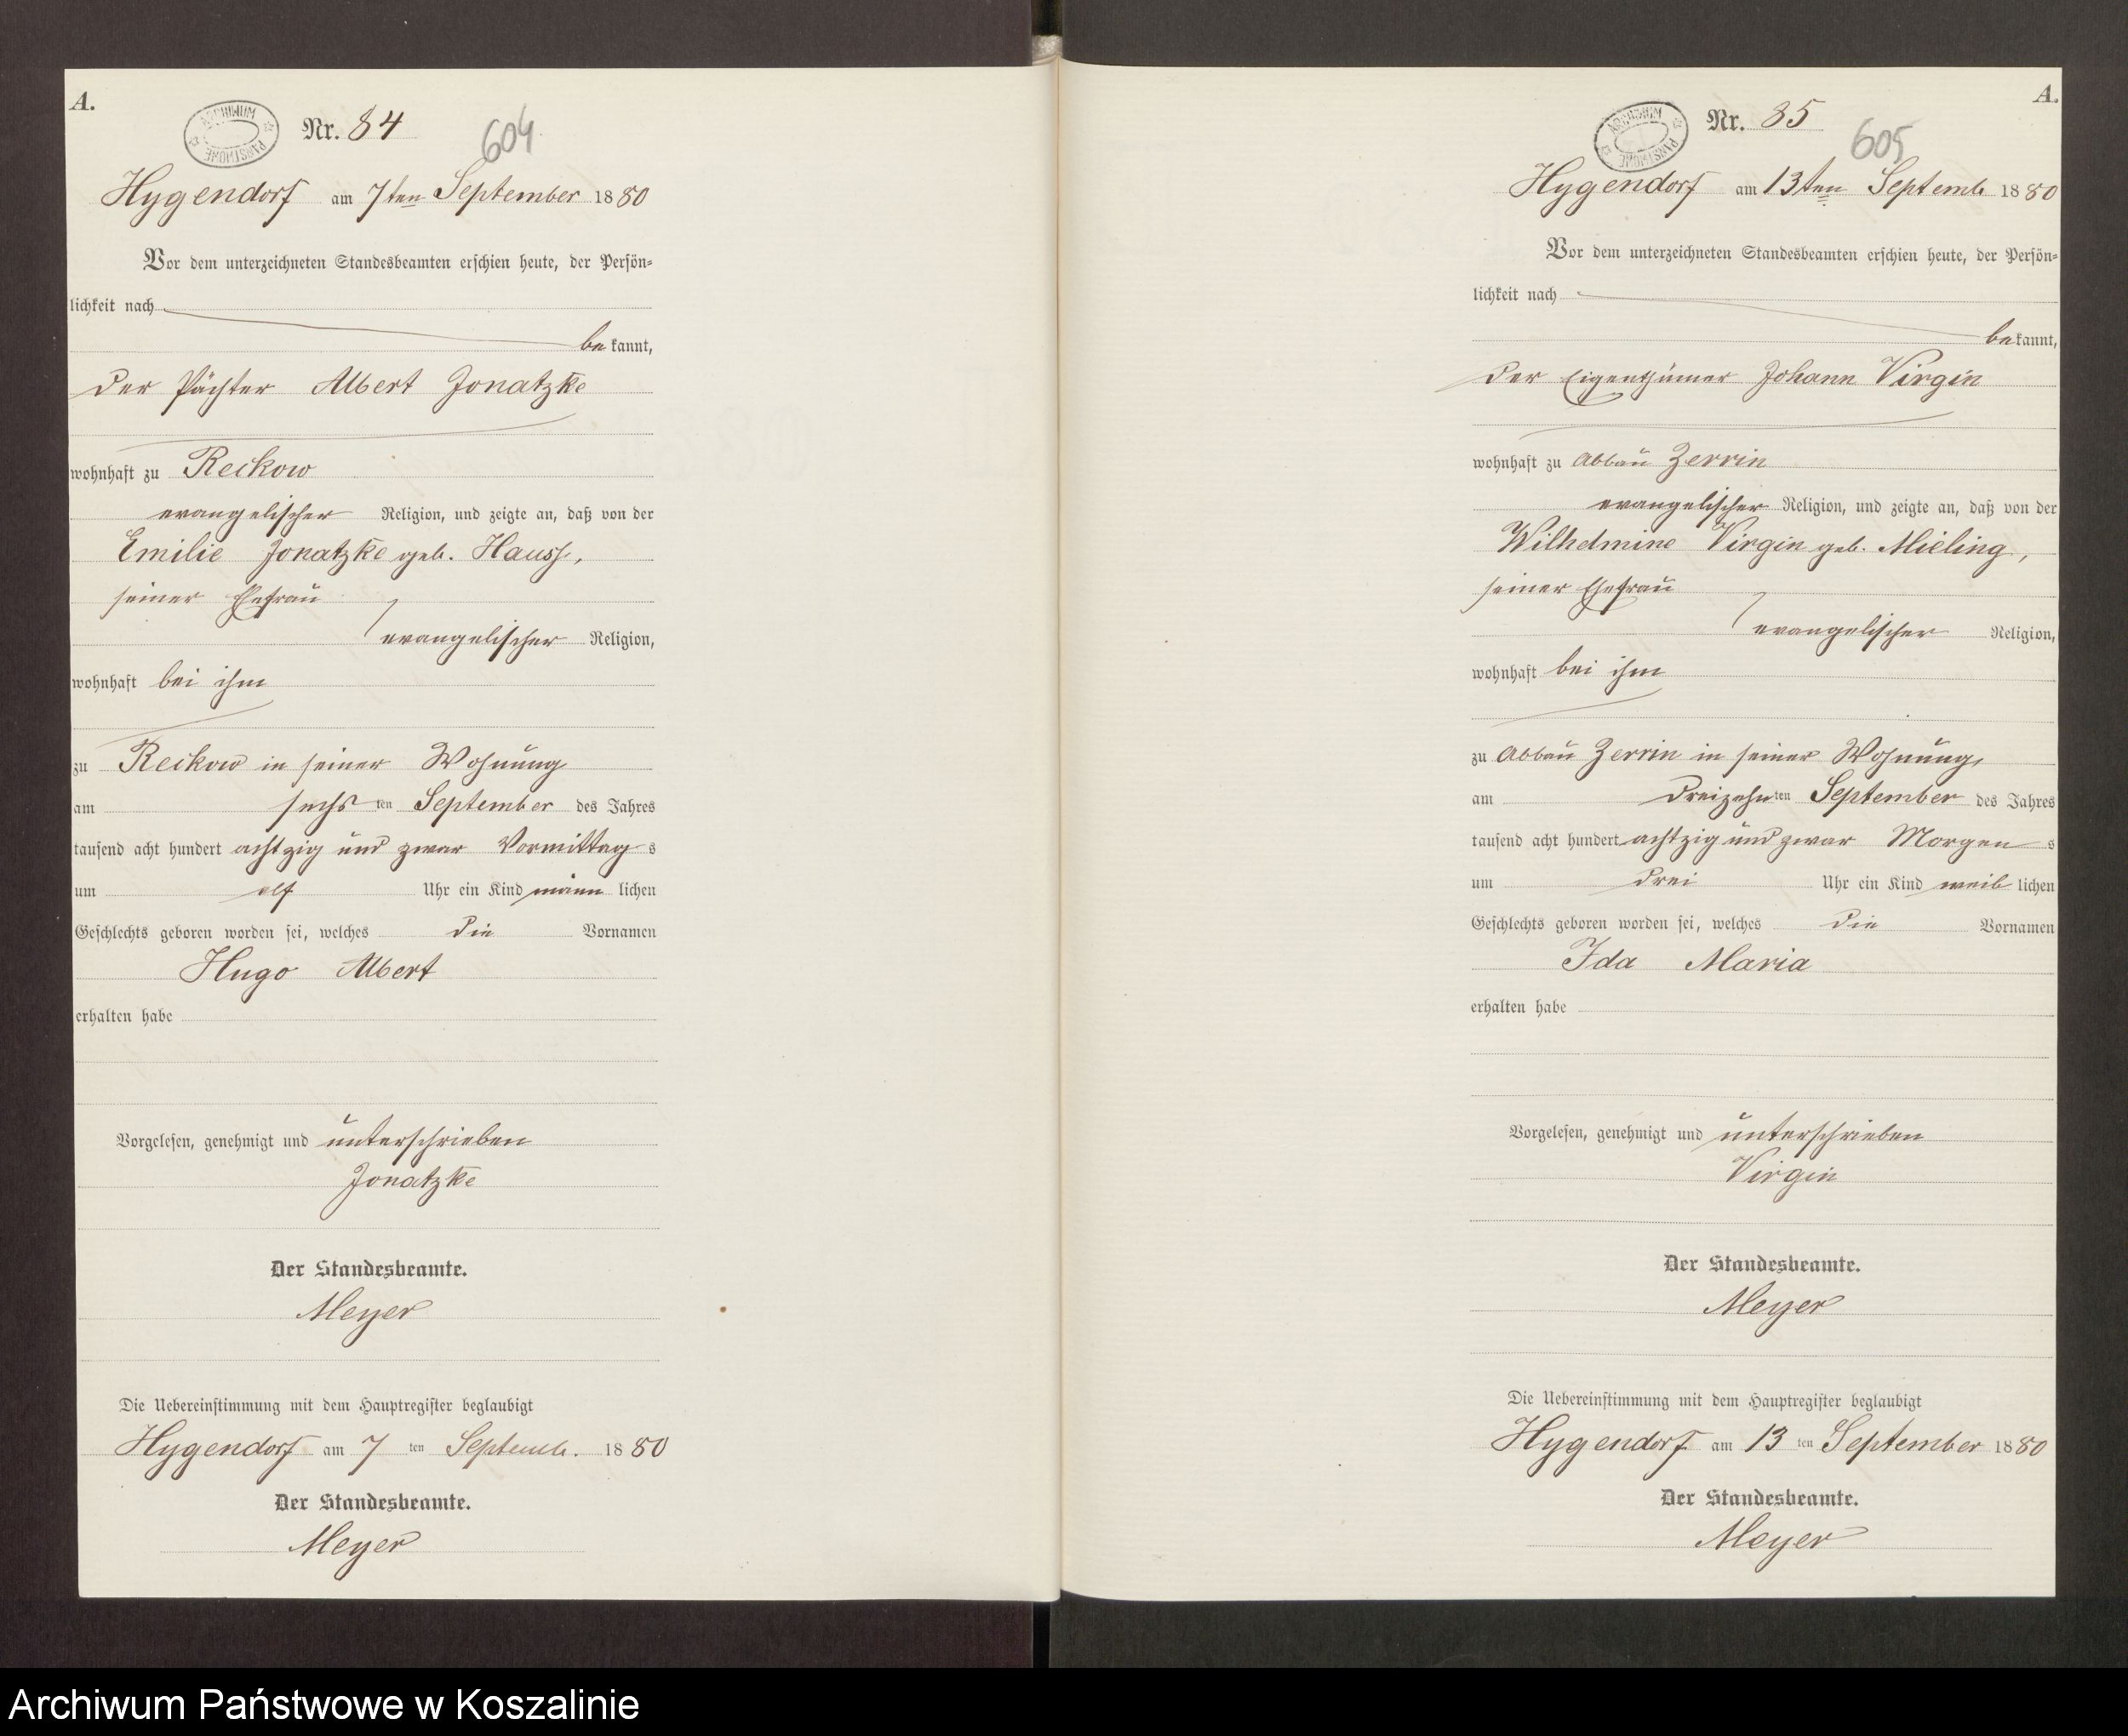 A.
ARCHIWUM PAŃSTWOWE
Nr. 84
604
Hygendorf am 7ten September 1880
Vor dem unterzeichneten Standesbeamten erschien heute, der Persön-
lichkeit nach
bekannt,
der Pächter Albert Jonatzke
wohnhaft zu Reckow
evangelischer Religion, und zeigte an, daß von der
Emilie Jonatzke geb. Hauss,
seiner Ehefrau
evangelischer Religion,
wohnhaft bei ihm
zu Reckow in seiner Wohnung
am sechsten September des Jahres
tausend acht hundert achtzig und zwar Vormittags
um elf Uhr ein Kind männlichen
Geschlechts geboren worden sei, welches die Vornamen
Hugo Albert
erhalten habe
Vorgelesen, genehmigt und unterschrieben
Jonatzke
Der Standesbeamte.
Meyer
Die Uebereinstimmung mit dem Hauptregister beglaubigt
Hygendorf am 7ten Septemb. 1880
Der Standesbeamte.
Meyer
A.
ARCHIWUM PAŃSTWOWE
Nr. 85
605
Hygendorf am 13ten Septemb 1880
Vor dem unterzeichneten Standesbeamten erschien heute, der Persön-
lichkeit nach
bekannt,
der Eigenthümer Johann Virgin
wohnhaft zu Abbau Zerrin
evangelischer Religion, und zeigte an, daß von der
Wilhelmine Virgin geb. Mieling,
seiner Ehefrau
evangelischer Religion,
wohnhaft bei ihm
zu Abbau Zerrin in seiner Wohnung,
am dreizehnten September des Jahres
tausend acht hundert achtzig und zwar Morgens
um drei Uhr ein Kind weiblichen
Geschlechts geboren worden sei, welches die Vornamen
Ida Maria
erhalten habe
Vorgelesen, genehmigt und unterschrieben
Virgin
Der Standesbeamte.
Meyer
Die Uebereinstimmung mit dem Hauptregister beglaubigt
Hygendorf am 13ten September 1880
Der Standesbeamte.
Meyer
Archiwum Państwowe w Koszalinie